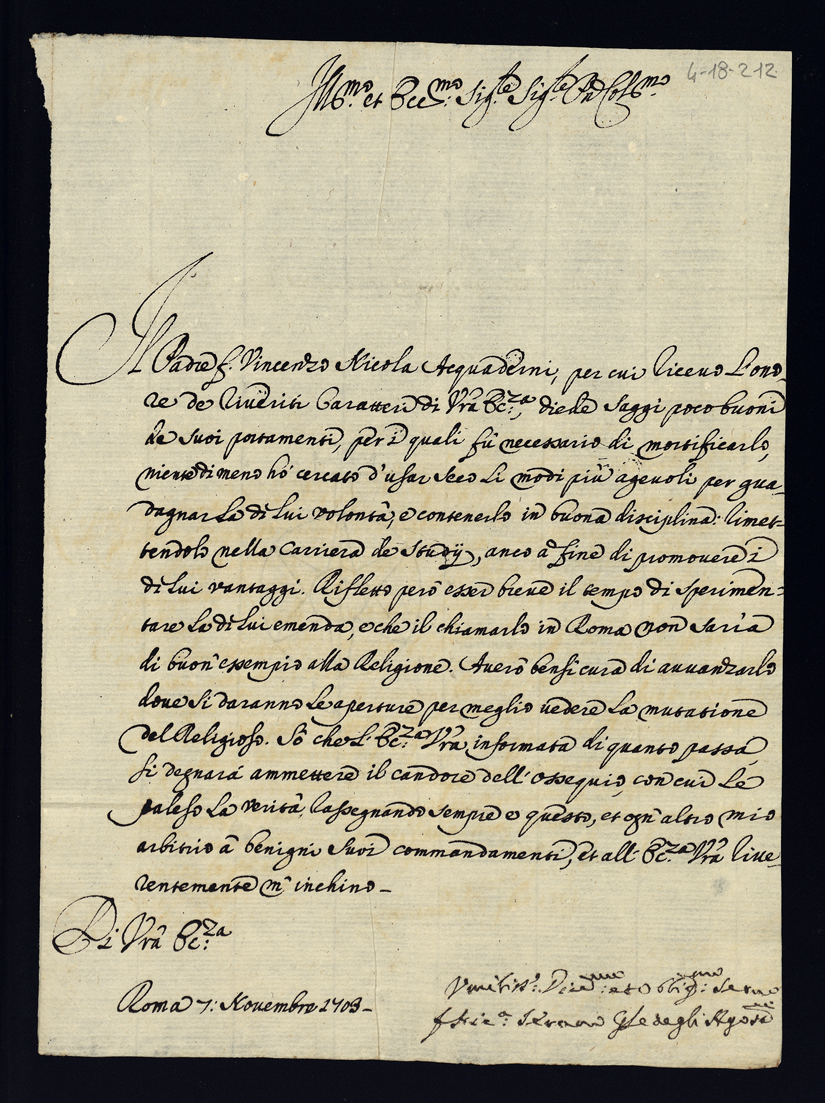 4-18-212
Ill.mo et Ecc.mo Sig.re Sig.re Pad Col.mo
Il Padre f. Vincenzo Nicola Acquaderni, per cui ricevo l'ono-
re de riveriti Caratteri di Vrã Ecc.za, diede saggi poco buoni
de suoi portamenti, per i quali fù necessario di mortificarlo,
nientedimeno hò cercato d'usar seco li modi più agevoli per gua-
dagnar la di lui volontà, e contenerlo in buona disciplina: rimet-
tendolo nella Carriera de Studij, anco à fine di promovere i
di lui vantaggi. Rifletto però esser breve il tempo di sperimen-
tare la di lui emenda, e che il chiamarlo in Roma non saria
di buon'essempio alla Religione. Averò bensi cura di avvanzarlo
dove si daranno le aperture per meglio vedere la mutatione
del Religioso. Sò che l'Ecc.za Vrã informata di quanto passa
si degnarà ammettere il candore dell'ossequio, con cui Le
paleso la verità, rassegnando sempre e questo, et ogn'altro mio
arbitrio à benigni suoi commandamenti, et all'Ecc.za Vrã rive-
rentemente m'inchino_
Di Vrã Ecc.za
Roma 7: Novembre 1703_
Umiliss: Div.mo et Obblig.mo Servo
f. Gñle degli Agost.ni